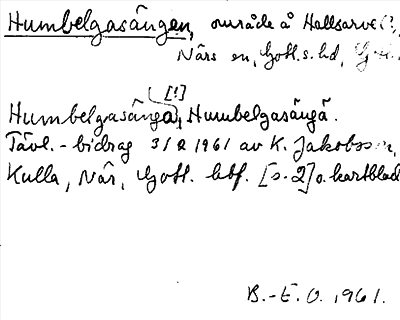 Humbelgasängen, område å Hallsarve (?),
Närs sn, Gotl. s. hd, Gotl.
[!]
Humbelgasänga, Humbelgasängä.
Tävl.-bidrag 3/2 1961 av K. Jakobsson,
Kulla, När, Gotl. hbf. [s. 2] o. kartblad
B.-E. O. 1961.